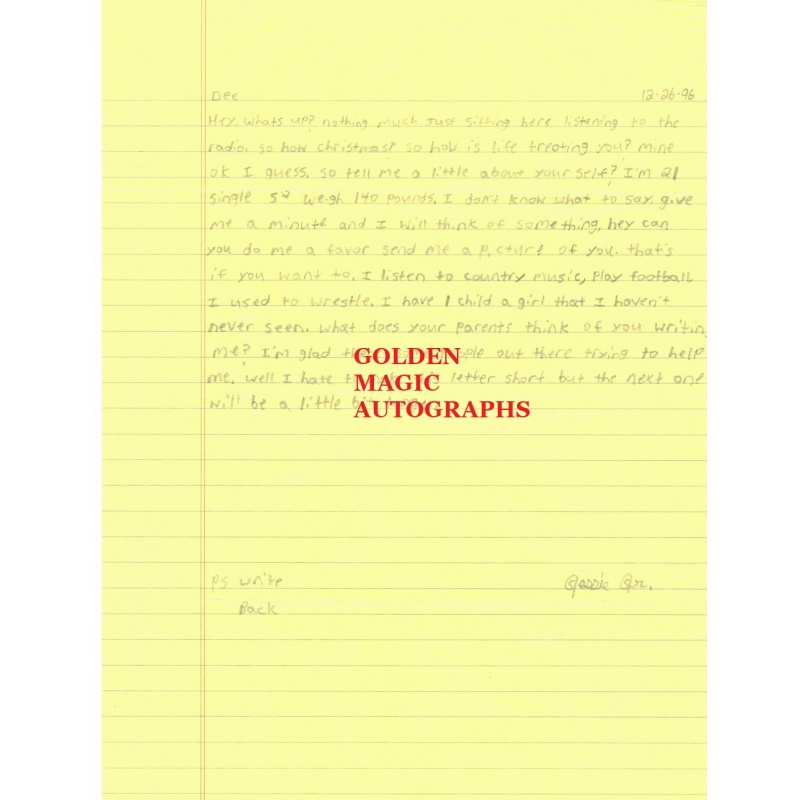 Dee 12-26-96
Hey. Whats up? nothing much Just sitting here listening to the
radio. so how christmas? so how is life treating you? mine
ok I guess. so tell me a little above your self? I'm 21
single 5² weigh 140 pounds. I don't know what to say. give
me a minute and I will think of something. hey can
you do me a favor send me a picture of you. that's
if you want to. I listen to country music, play football
I used to wrestle. I have 1 child a girl that I haven't
never seen. what does your parents think of you writin
me? I'm glad people out there trying to help
me. well I hate letter short but the next one
will be a little bit
GOLDEN
MAGIC
AUTOGRAPHS
PS write Jessie Jr.
Back